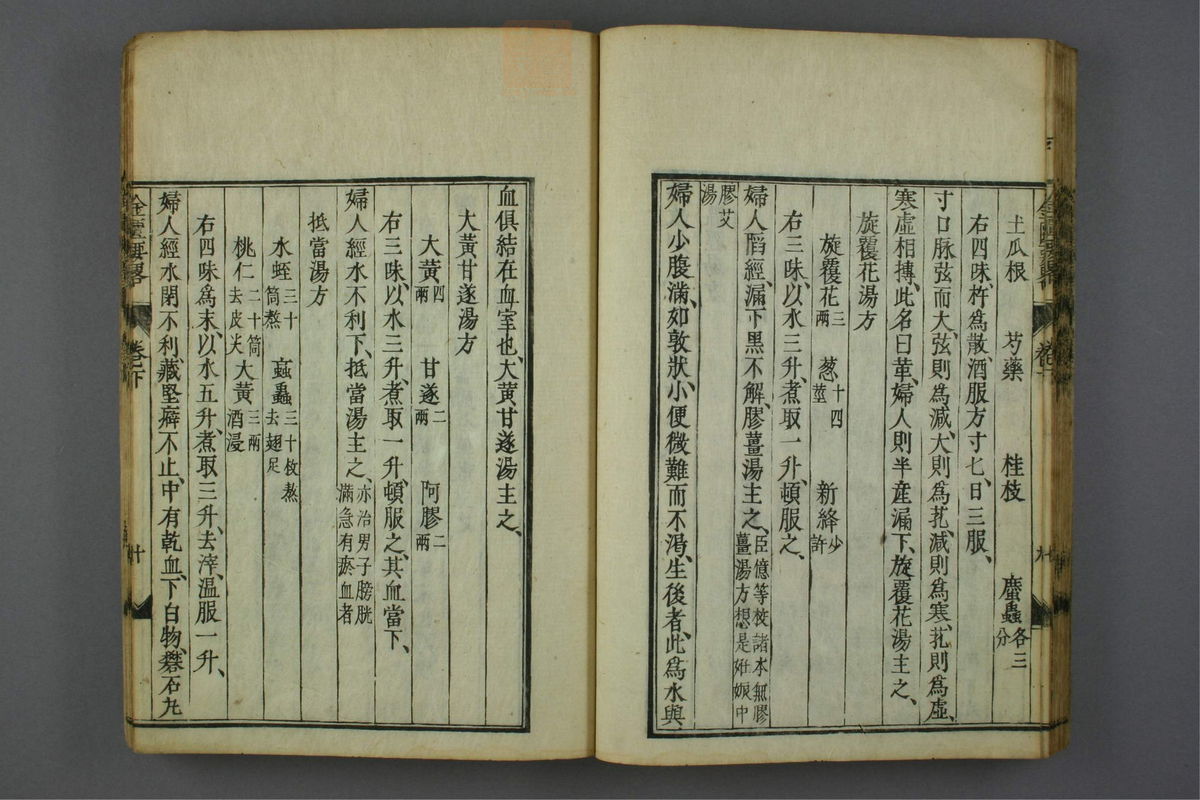 土瓜根 芍藥 桂枝 䗪蟲各三分
右四味、杵爲散、酒服方寸匕、日三服、
寸口脉弦而大、弦則爲減、大則爲芤、減則爲寒、芤則爲虛、
寒虛相搏、此名曰革、婦人則半產漏下、旋覆花湯主之、
旋覆花湯方
旋覆花三兩 葱十四莖 新絳少許
右三味、以水三升、煮取一升、頓服之、
婦人䧟經、漏下黒不解、膠薑湯主之、臣億等校諸本無膠薑湯方想是妊娠中
膠艾湯
婦人少腹滿、如敦狀、小便微難而不渴、生後者、此爲水與
血俱結在血室也、大黃甘遂湯主之、
大黃甘遂湯方
大黃四兩 甘遂二兩 阿膠二兩
右三味、以水三升、煮取一升、頓服之、其血當下、
婦人經水不利下、抵當湯主之、亦治男子膀胱滿急有瘀血者
抵當湯方
水蛭三十箇熬 䖟蟲三十枚熬去翅足
桃仁二十箇去皮尖 大黃三兩酒浸
右四味爲末、以水五升、煮取三升、去滓、温服一升、
婦人經水閉不利、藏堅癖不止、中有乾血、下白物、礬石丸
金匱要畧 卷下 十